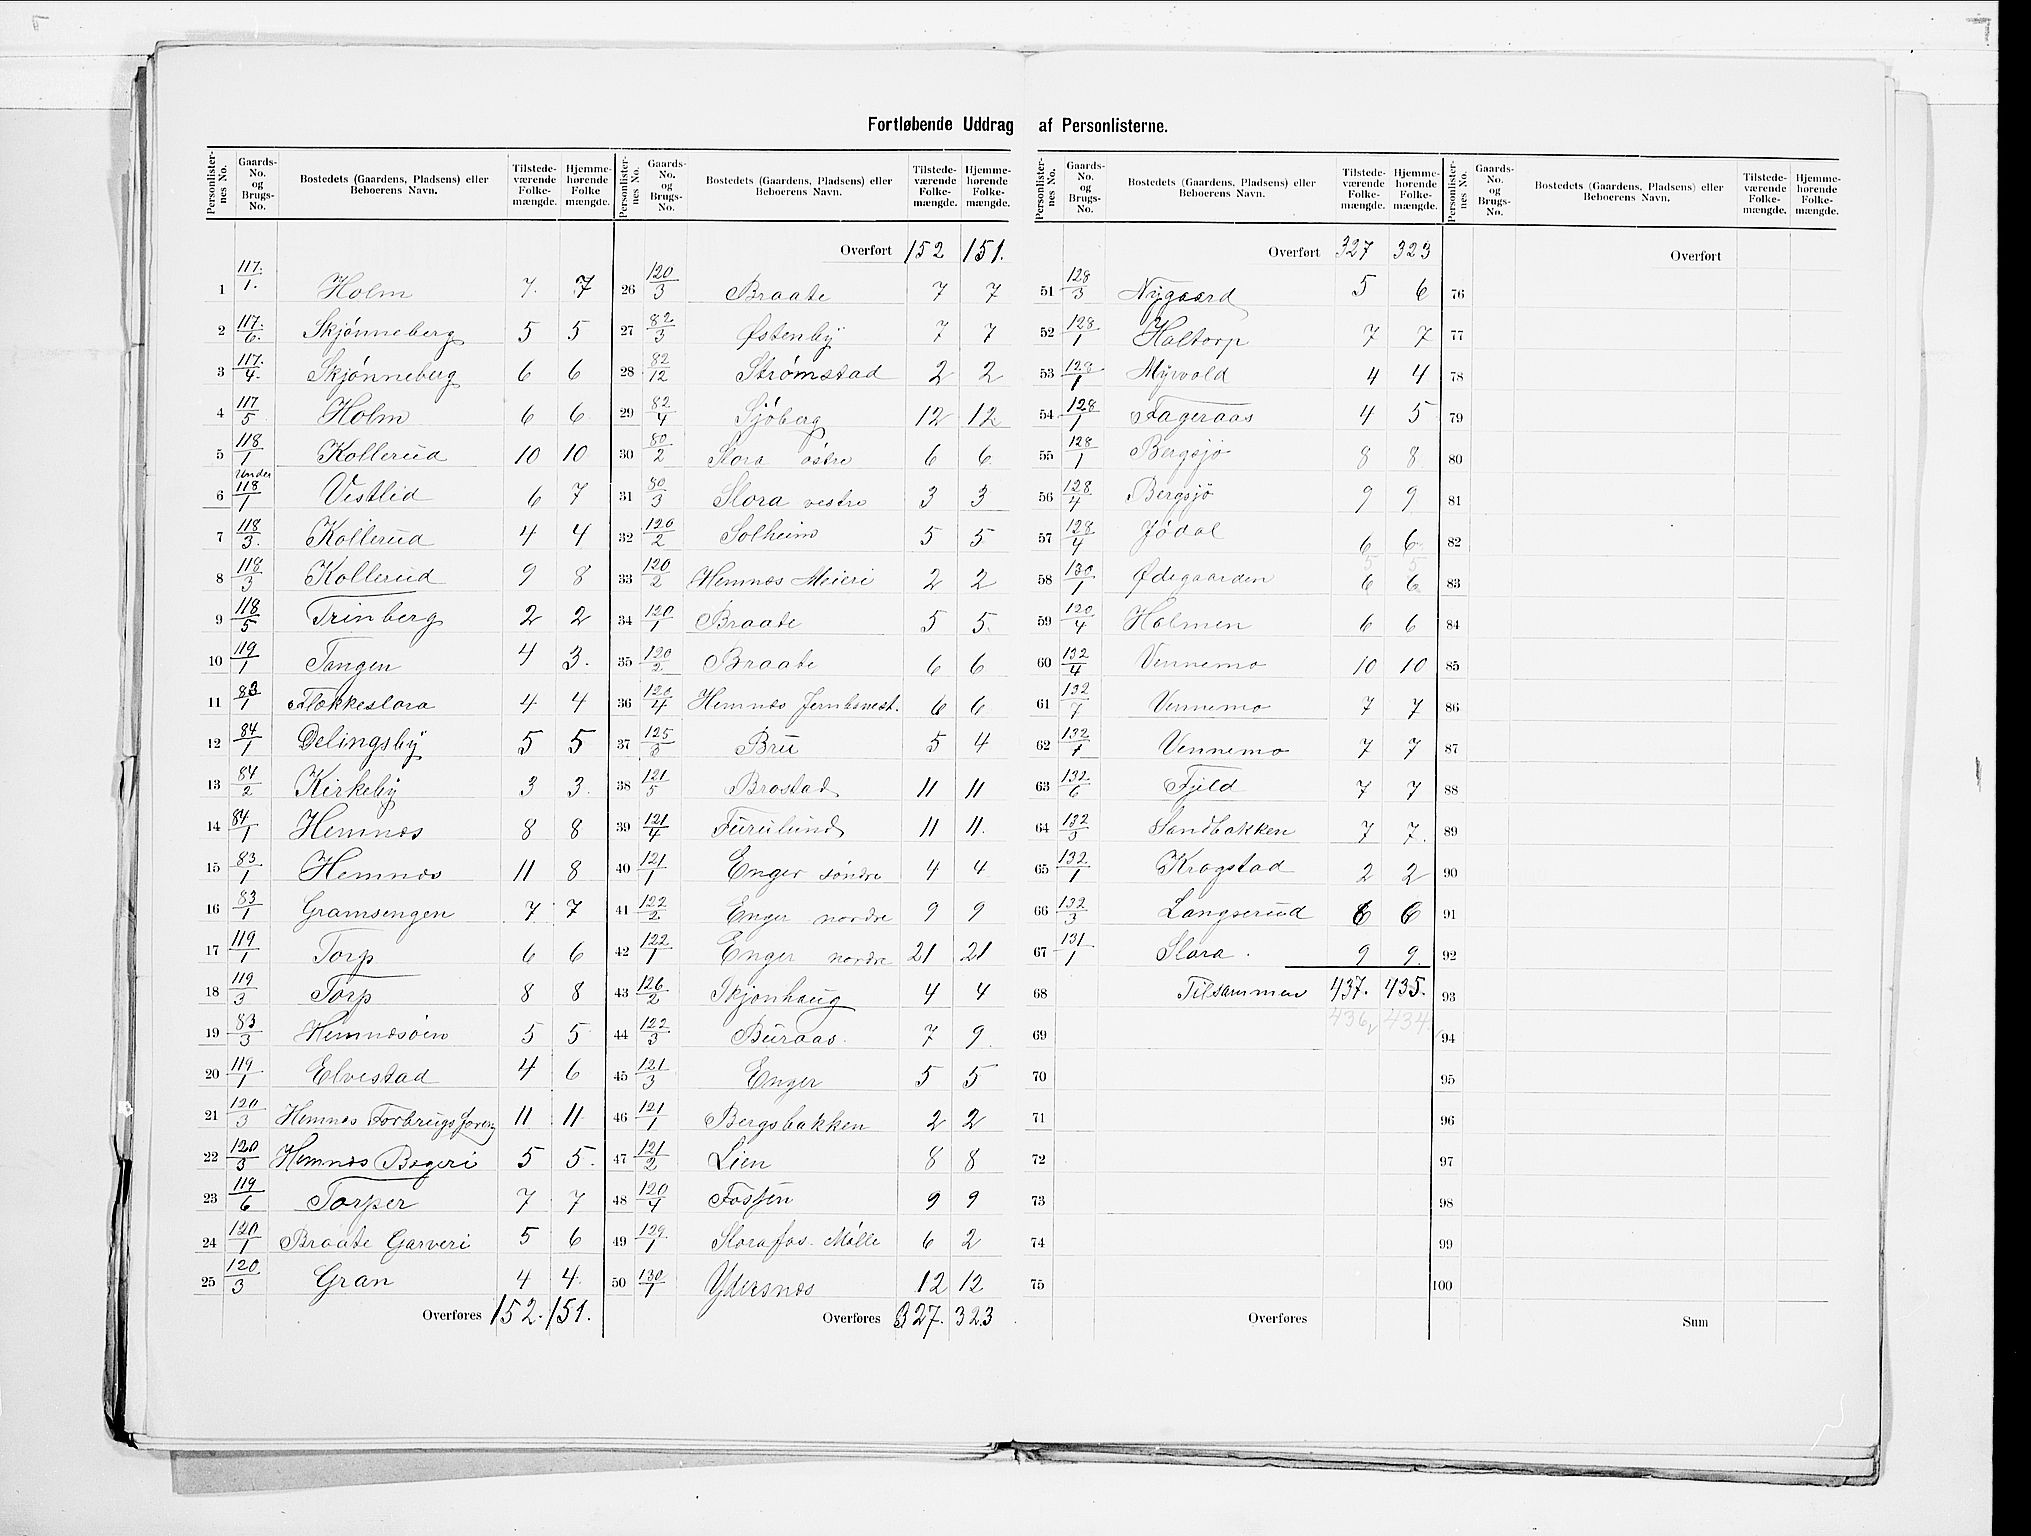 Fortløbende Uddrag af Personlisterne.
Personlister-nes No. | Gaards-No. og Brugs-No. | Bostedets (Gaardens, Pladsens) eller Beboerens Navn. | Tilstede-værende Folke-mængde. | Hjemme-hørende Folke mængde.
1 117./1. Holm 7. 7
2 117./6. Skjønneberg 5 5
3 117./4. Skjønneberg 6 6
4 117/5 Holm 6 6
5 118/1 Kollerud 10 10
6 Under 118/1 Vestlid 6 7
7 118/3. Kollerud 4 4
8 118/3 Kollerud 9 8
9 118/5 Trinberg 2 2
10 119/1 Tangen 4 3.
11 83/1 Flokkeslora 4 4
12 84/1 Delingsby 5 5
13 84/2 Kirkeby 3 3.
14 84/1 Hemnæs 8 8
15 83/1 Hemnæs 11 8
16 83/1 Gramsengen 7. 7
17 119/1 Torp 6 6
18 119/3 Torp 8 8
19 83/3 Hemnæsøen 5 5
20 119/1 Elvestad 4 6
21 120/3 Hemnæs Forbrugsforen 11 11.
22 120/3 Hemnæs Bageri 5 5.
23 119/6 Torper 7 7
24 120/1 Braate Garveri 5 6
25 120/3 Gran 4 4.
Overføres 152. 151.
Personlister-nes No. | Gaards-No. og Brugs-No. | Bostedets (Gaardens, Pladsens) eller Beboerens Navn. | Tilstede-værende Folke-mængde. | Hjemme-hørende Folke-mængde.
Overført 152 151.
26 120/3 Braate 7 7
27 82/3 Østenby 7 7
28 82/12 Strømstad 2 2
29 82/4 Sjøberg 12 12
30 80/2 Slora østre 6 6
31 80/3 Slora vestre 3 3
32 120/2 Solheim 5 5
33 120/2 Hemnæs Meieri 2 2
34 120/1 Braate 5 5.
35 120/2 Braate 6 6
36 120/4 Hemnæs Jernbanest. 6 6
37 125/3 Bru 5 4
38 121/5 Brostad 11 11
39 121/4 Furulund 11 11.
40 121/1 Enger søndre 4 4
41 122/2 Enger nordre 9 9
42 122/1 Enger nordre 21 21
43 126/2 Skjønhaug 4 4
44 122/3 Buraas. 7 9.
45 121/3 Enger 5 5
46 121/1 Bergsbakken 2 2
47 121/2 Lien 8 8
48 120/4 Fossen 9 9
49 129./1 Slorafos Mølle 6 2
50 130/1 Ydersnæs 12 12
Overføres 327. 323
Personlister-nes No. | Gaards-No. og Brugs-No. | Bostedets (Gaardens, Pladsens) eller Beboerens Navn. | Tilstede-værende Folke-mængde. | Hjemme-hørende Folke-mængde.
Overført 327 323
51 128/3 Nygaard 5 6
52 128/1 Haltorp 7 7
53 128/1 Myrvold 4 4
54 128/1 Fageraas 4 5
55 128/1 Bergsjø 8 8
56 128/4 Bergsjø 9 9
57 128/4 Jødal 6 6.
5 5
58 130/1 Ødegaarden 6 6
59 120/4 Holmen 6 6
60 132/4 Vennemo 10 10
61 132/7 Vennemo 7 7
62 132/1 Vennemo 7 7
63 132/6 Fjeld 7 7
64 132/5 Sandbakken 7 7.
65 132./1 Krogstad 2 2
66 132/3 Langserud 6 6
67 131/1 Slora. 9 9.
68 Tilsammen 437. 435.
436 434
69
70
71
72
73
74
75
Overføres
Personlister-nes No. | Gaards-No. og Brugs-No. | Bostedets (Gaardens, Pladsens) eller Beboerens Navn. | Tilstede-værende Folke-mængde. | Hjemme-hørende Folke-mængde.
Overført
76
77
78
79
80
81
82
83
84
85
86
87
88
89
90
91
92
93
94
95
96
97
98
99
100
Sum